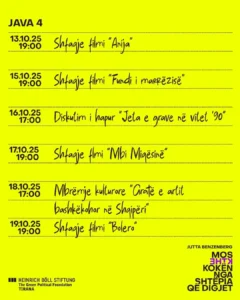 JAVA 4
13.10.25
19:00
Shfaqje filmi "Anija"
15.10.25
19:00
Shfaqje filmi "Fundi i marrëzisë"
16.10.25
17:00
Diskutim i hapur "Jeta e grave në vitet '90"
17.10.25
19:00
Shfaqje filmi "Mbi Miqësinë"
18.10.25
17:00
Mbrëmje kulturore "Gratë e artit
bashkëkohor në Shqipëri"
19.10.25
19:00
Shfaqje filmi "Bolero"
HEINRICH BÖLL STIFTUNG
The Green Political Foundation
TIRANA
JUTTA BENZENBERG
MOS
KTHE
KOKËN
NGA
SHTËPIA
QË DIGJET